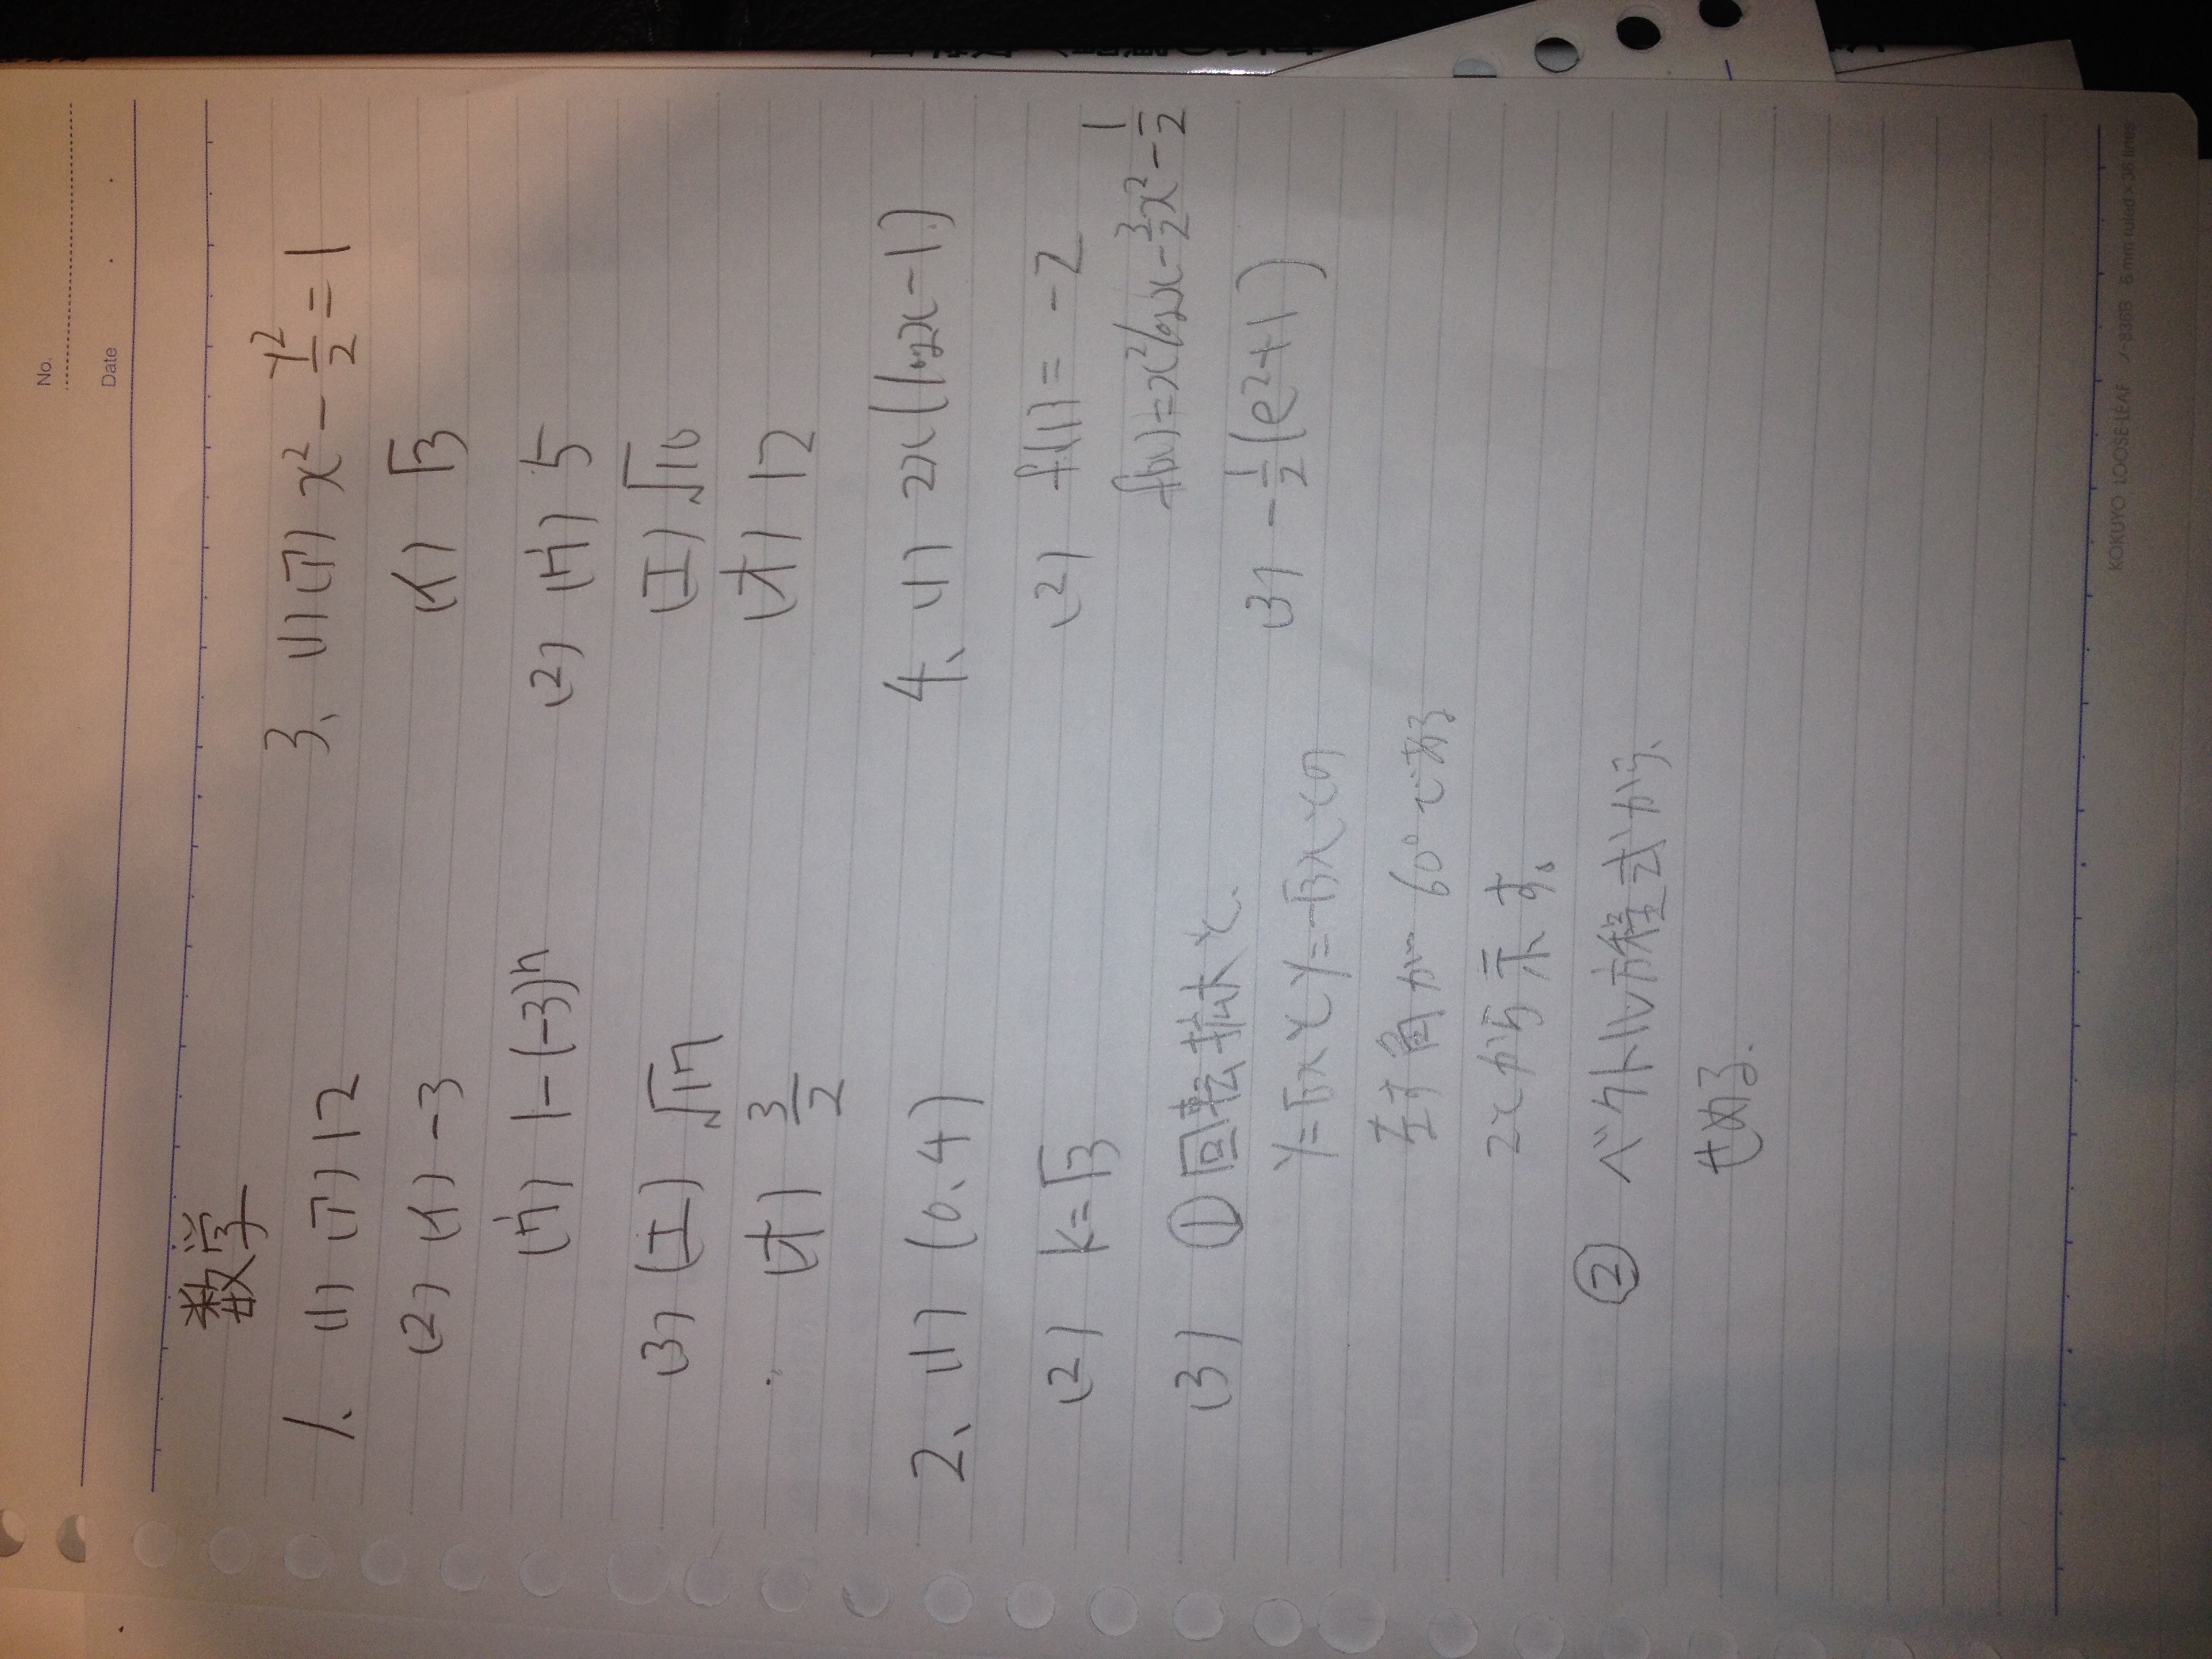 No.
Date
数学
1、(1) (ア) 12
(2) (イ) -3
(ウ) 1-(-3)^n
(3) (エ) √17
(オ) 3/2
2、(1) (0、4)
(2) k=√3
(3) ① 回転拡大と、
y=√3xとy=-√3xとの
なす角が60°である
ことから示す。
② ベクトル方程式から、
せめる.
3、(1) (ア) x²-y²/2=1
(イ) √3
(2) (ウ) 5
(エ) √10
(オ) 12
4、(1) 2x(logx-1)
(2) f(1)=-2
f(x)=x²logx-3/2x²-1/2
(3) -1/2(e²+1)
KOKUYO LOOSE-LEAF ノ-836B 6 mm ruled×36 lines